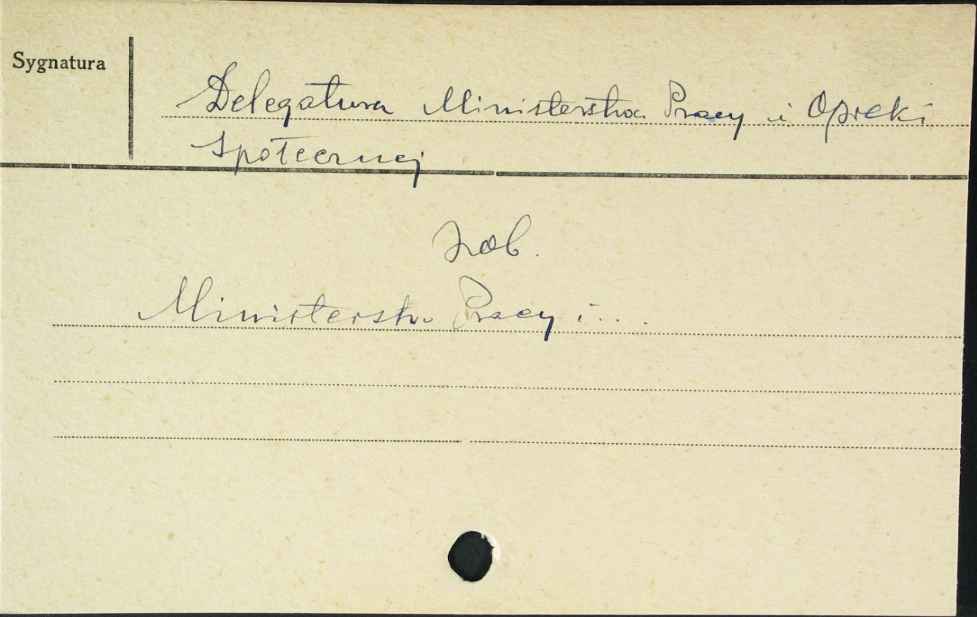 Sygnatura
Delegatura Ministerstwa Pracy i Opieki
Społecznej
zob.
Ministerstwo Pracy i...